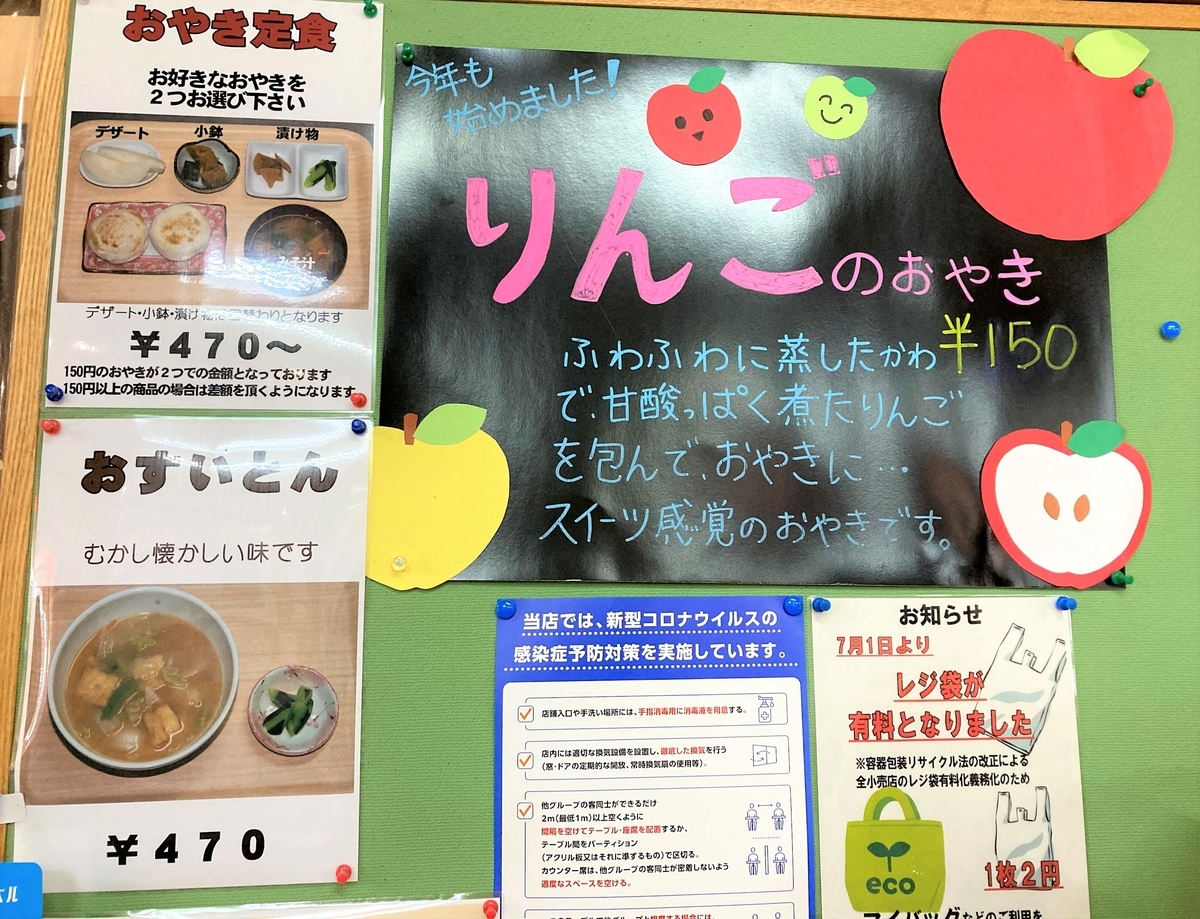 おやき定食
お好きなおやきを
2つお選び下さい
デザート
小鉢
漬け物
みそ汁
デザート・小鉢・漬け物は日替わりとなります
¥470〜
150円のおやきが2つでの金額となっております
150円以上の商品の場合は差額を頂くようになります
おずいとん
むかし懐かしい味です
¥470
今年も
始めました!
りんごのおやき
¥150
ふわふわに蒸したかわ
で、甘酸っぱく煮たりんご
を包んで、おやきに…
スイーツ感覚のおやきです。
当店では、新型コロナウイルスの
感染症予防対策を実施しています。
店舗入口や手洗い場所には、手指消毒用に消毒液を用意する。
店内には適切な換気設備を設置し、徹底した換気を行う
(窓・ドアの定期的な開放、常時換気扇の使用等)。
他グループの客同士ができるだけ
2m(最低1m)以上空くように
間隔を空けてテーブル・座席を配置するか、
テーブル間をパーティション
(アクリル板又はそれに準ずるもの)で区切る。
カウンター席は、他グループの客同士が密着しないよう
適度なスペースを空ける。
お知らせ
7月1日より
レジ袋が
有料となりました
※容器包装リサイクル法の改正による
全小売店のレジ袋有料化義務化のため
eco
1枚2円
マイバッグなどのご利用を